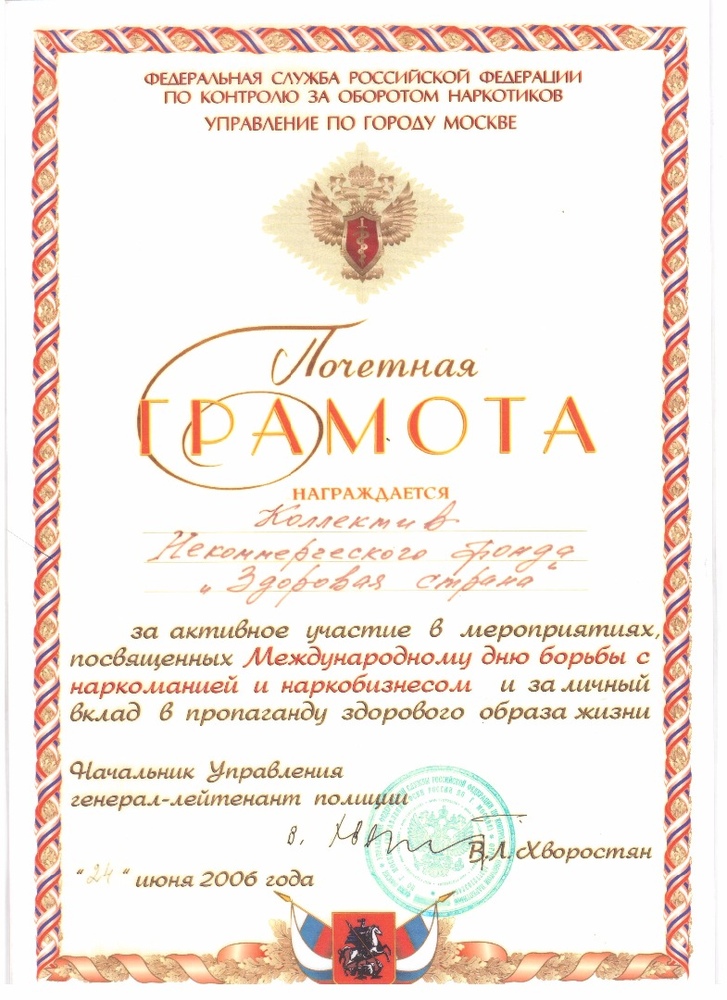 ФЕДЕРАЛЬНАЯ СЛУЖБА РОССИЙСКОЙ ФЕДЕРАЦИИ
ПО КОНТРОЛЮ ЗА ОБОРОТОМ НАРКОТИКОВ
УПРАВЛЕНИЕ ПО ГОРОДУ МОСКВЕ
Почетная
ГРАМОТА
НАГРАЖДАЕТСЯ
Коллектив
Некоммерческого фонда
"Здоровая страна"
за активное участие в мероприятиях,
посвященных Международному дню борьбы с
наркоманией и наркобизнесом и за личный
вклад в пропаганду здорового образа жизни
Начальник Управления
генерал-лейтенант полиции
В.Л. Хворостян
"24" июня 2006 года